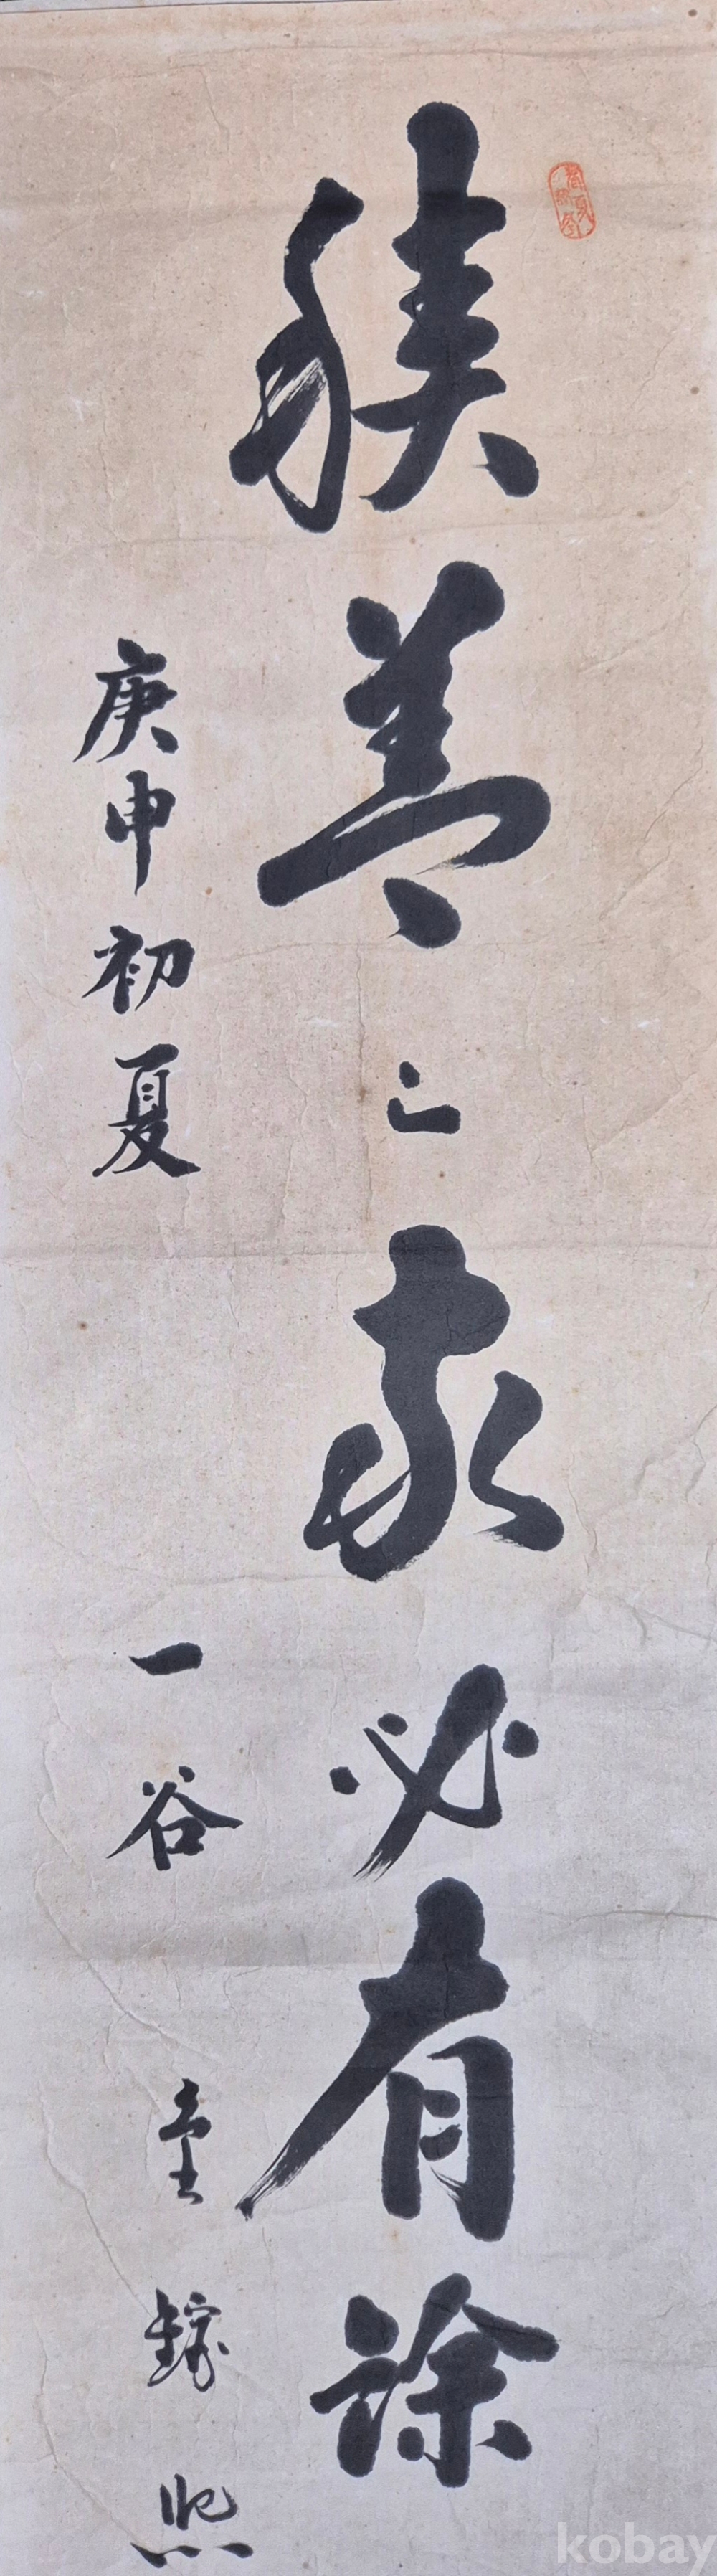 積善之家必有餘
庚申初夏
一谷
kobay